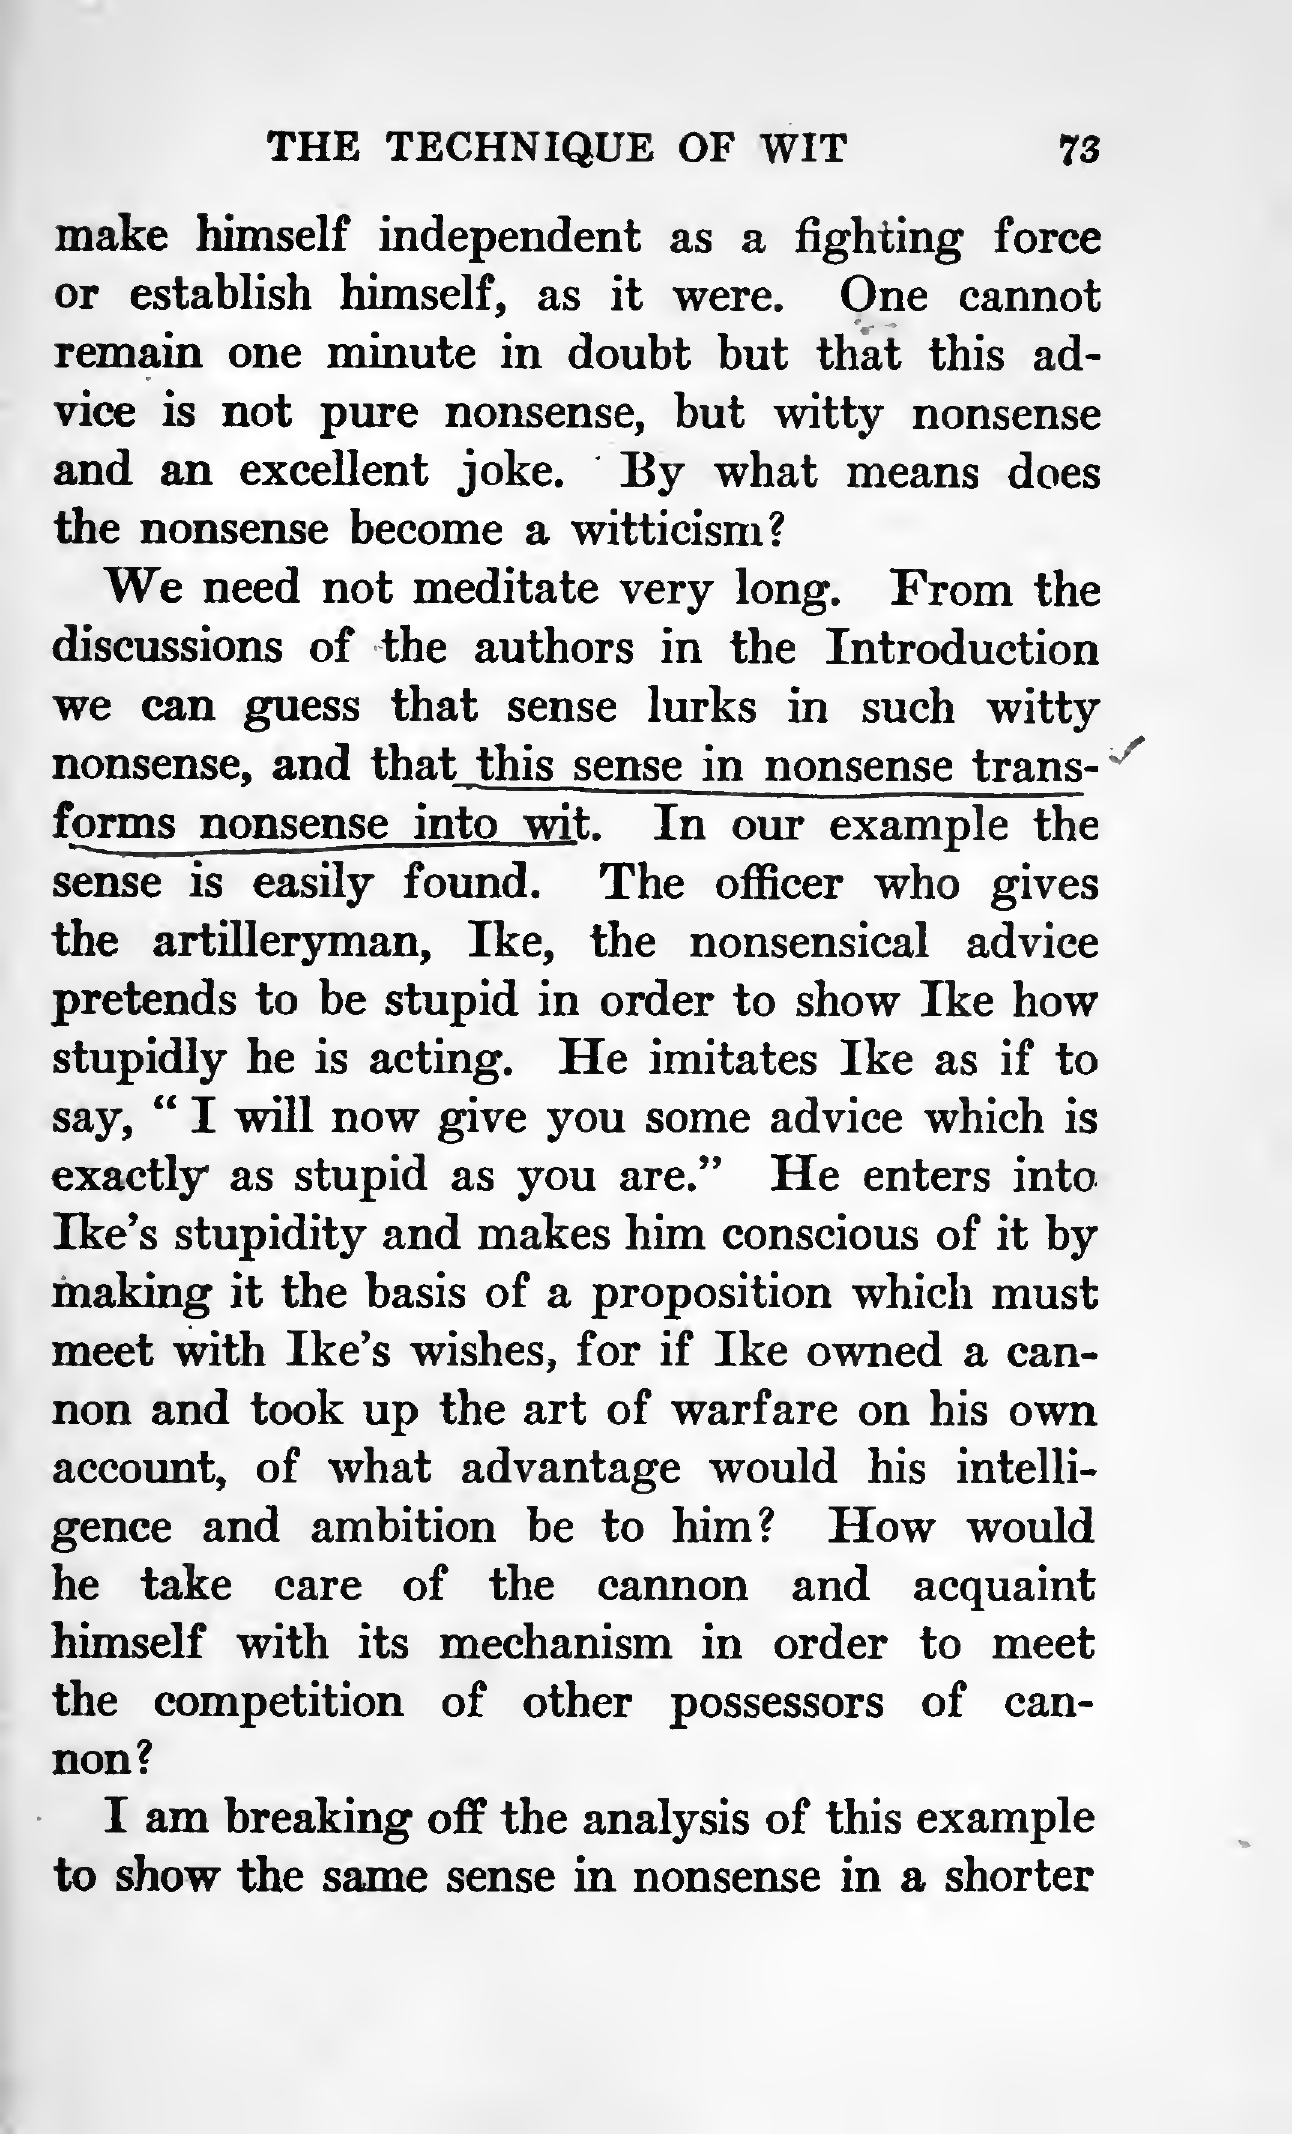 THE TECHNIQUE OF WIT 73
make himself independent as a fighting force
or establish himself, as it were. One cannot
remain one minute in doubt but that this ad-
vice is not pure nonsense, but witty nonsense
and an excellent joke. By what means does
the nonsense become a witticism?
We need not meditate very long. From the
discussions of the authors in the Introduction
we can guess that sense lurks in such witty
nonsense, and that this sense in nonsense trans-
forms nonsense into wit. In our example the
sense is easily found. The officer who gives
the artilleryman, Ike, the nonsensical advice
pretends to be stupid in order to show Ike how
stupidly he is acting. He imitates Ike as if to
say, “ I will now give you some advice which is
exactly as stupid as you are.” He enters into
Ike’s stupidity and makes him conscious of it by
making it the basis of a proposition which must
meet with Ike’s wishes, for if Ike owned a can-
non and took up the art of warfare on his own
account, of what advantage would his intelli-
gence and ambition be to him? How would
he take care of the cannon and acquaint
himself with its mechanism in order to meet
the competition of other possessors of can-
non?
I am breaking off the analysis of this example
to show the same sense in nonsense in a shorter